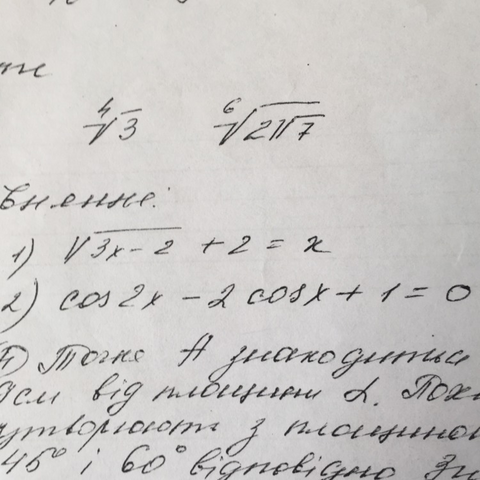 ⁴√3 ⁶√(2√7)
внение:
1) √(3x-2) + 2 = x
2) cos 2x - 2 cos x + 1 = 0
Точка А знаходиться
від площини α.
утворюют з площиною
45° і 60° відповідно